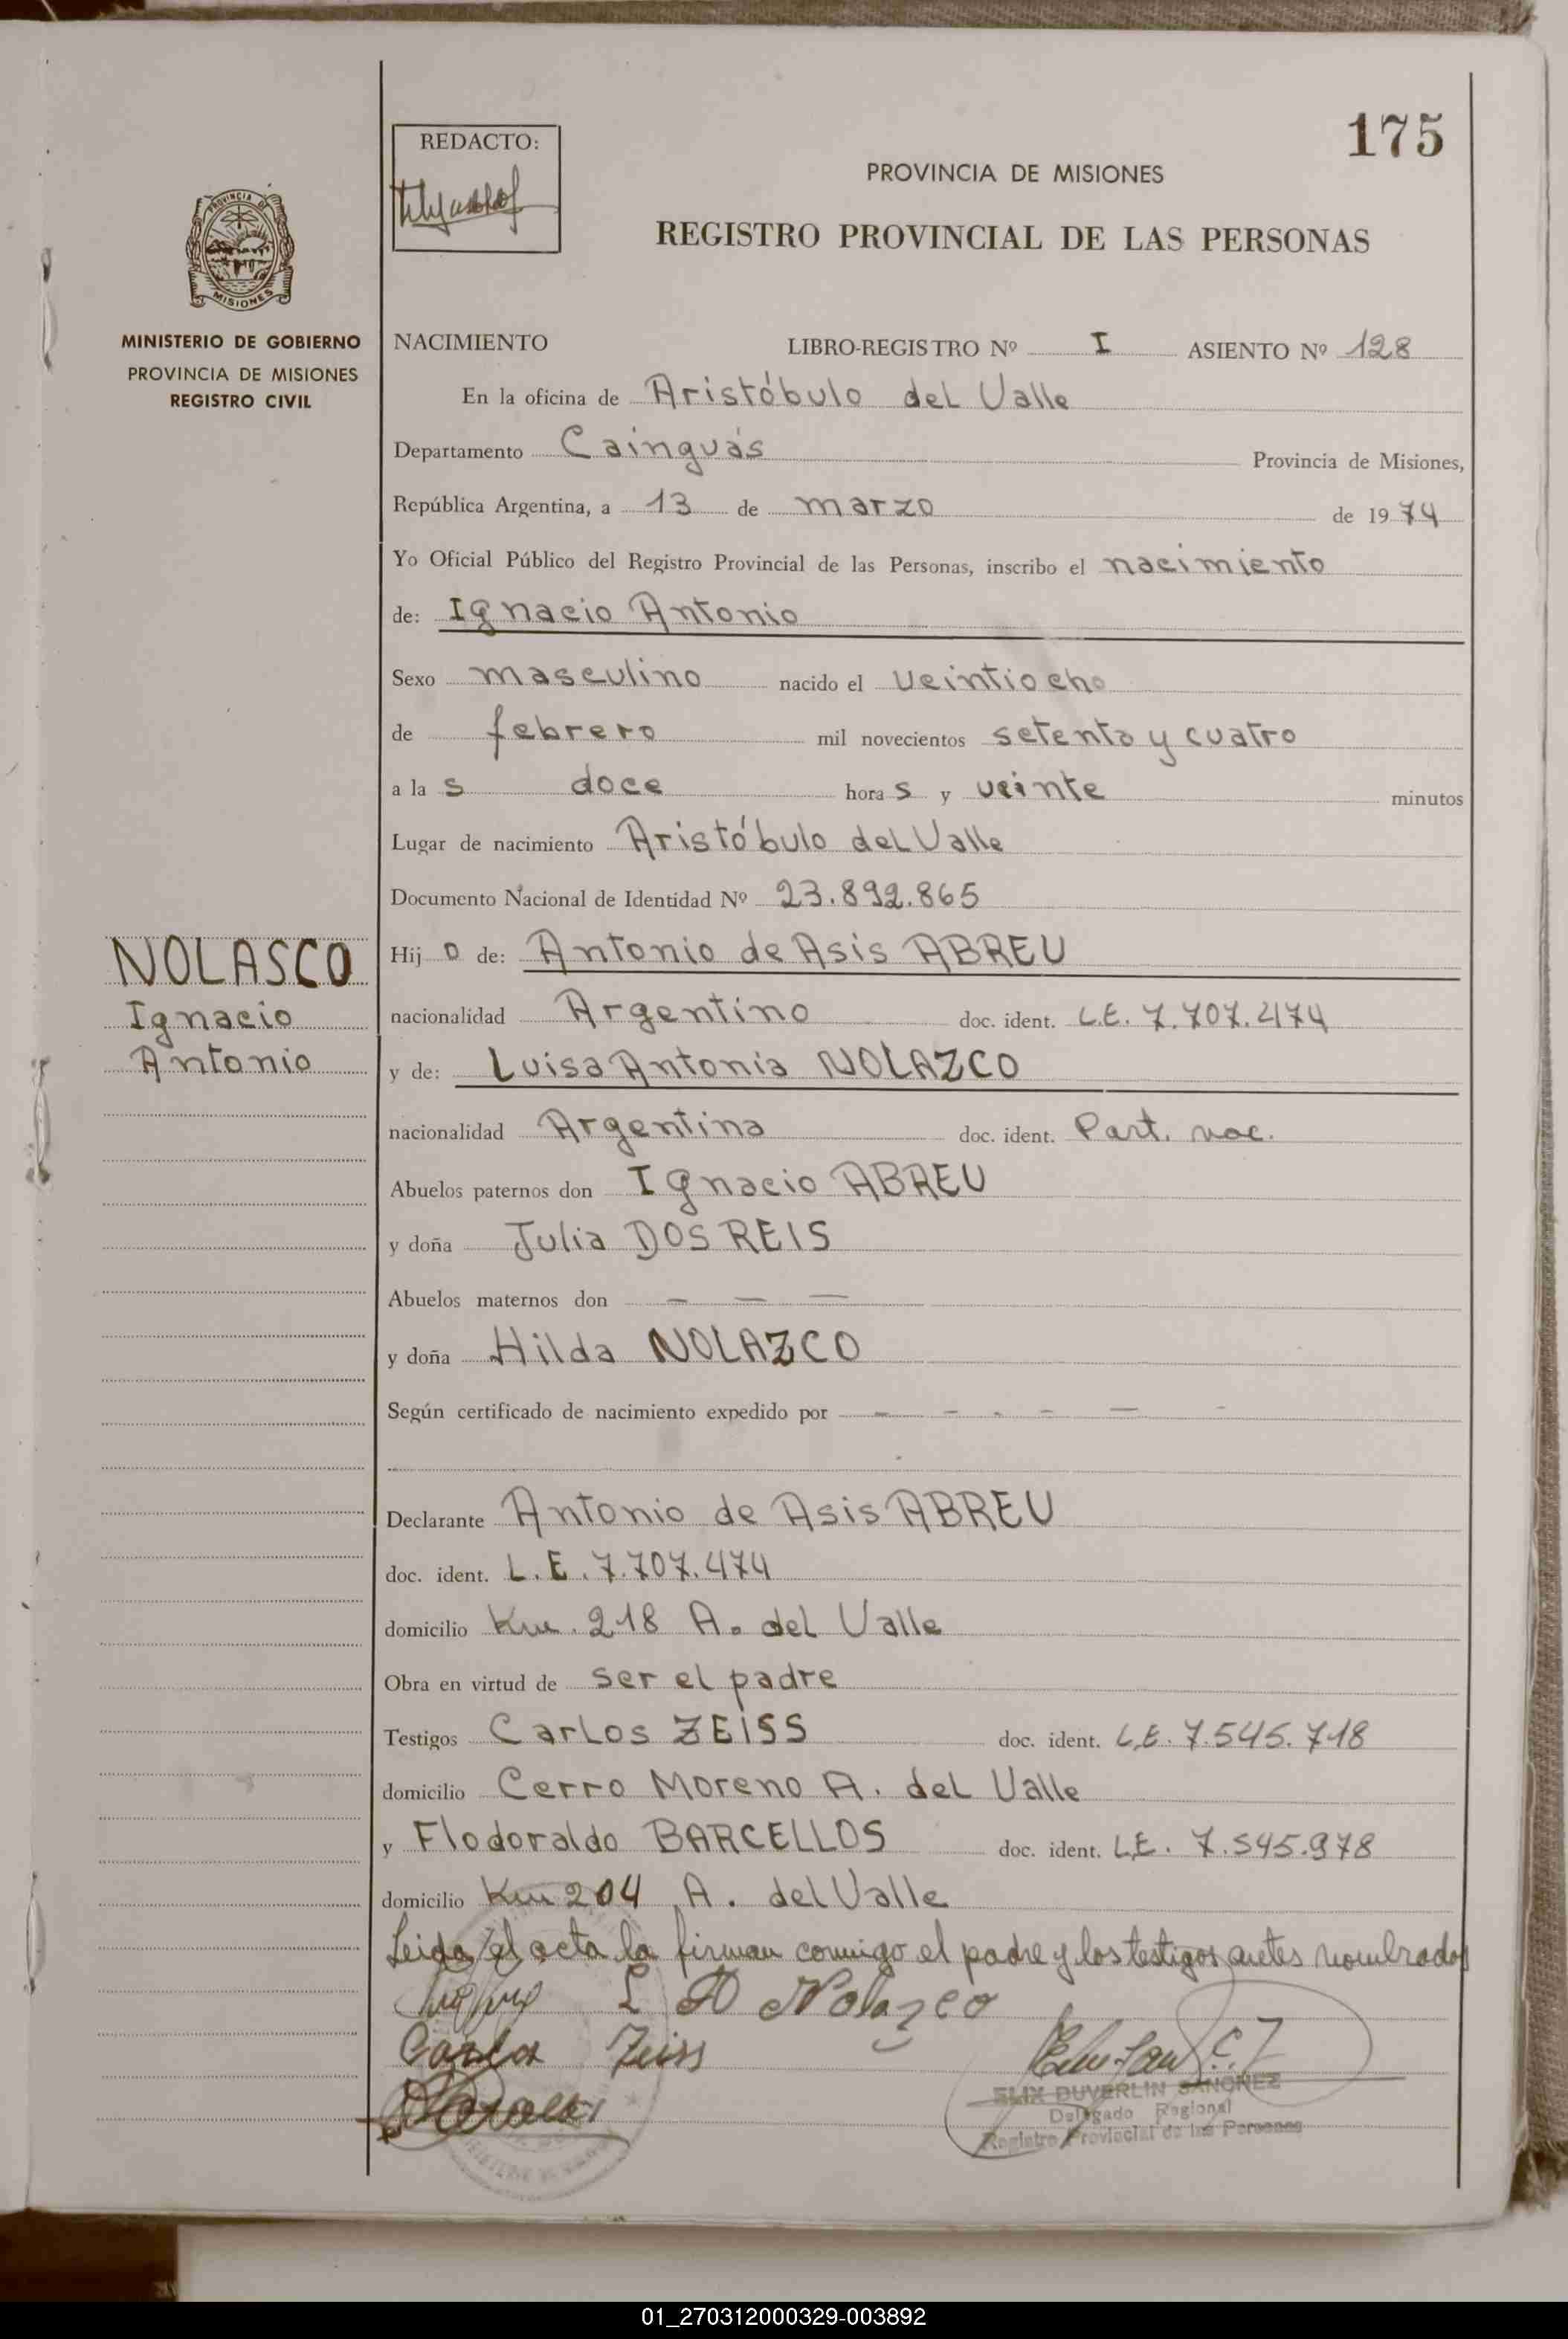 175
REDACTO:
PROVINCIA DE MISIONES
REGISTRO PROVINCIAL DE LAS PERSONAS
PROVINCIA DE
MISIONES
MINISTERIO DE GOBIERNO
PROVINCIA DE MISIONES
REGISTRO CIVIL
NACIMIENTO LIBRO-REGISTRO Nº I ASIENTO Nº 128
En la oficina de Aristóbulo del Valle
Departamento Cainguás Provincia de Misiones,
República Argentina, a 13 de marzo de 1974
Yo Oficial Público del Registro Provincial de las Personas, inscribo el nacimiento
de: Ignacio Antonio
Sexo masculino nacido el veintiocho
de febrero mil novecientos setenta y cuatro
a las doce horas y veinte minutos
Lugar de nacimiento Aristóbulo del Valle
Documento Nacional de Identidad Nº 23.892.865
NOLASCO
Ignacio
Antonio
Hijo de: Antonio de Asis ABREU
nacionalidad Argentino doc. ident. L.E. 7.707.474
y de: Luisa Antonia NOLAZCO
nacionalidad Argentina doc. ident. Part. nac.
Abuelos paternos don Ignacio ABREU
y doña Julia DOS REIS
Abuelos maternos don — — —
y doña Hilda NOLAZCO
Según certificado de nacimiento expedido por - - - - — -
Declarante Antonio de Asis ABREU
doc. ident. L.E. 7.707.474
domicilio Km. 218 A. del Valle
Obra en virtud de ser el padre
Testigos Carlos ZEISS doc. ident. L.E. 7.545.718
domicilio Cerro Moreno A. del Valle
y Flodoraldo BARCELLOS doc. ident. L.E. 7.545.978
domicilio Km 204 A. del Valle
Leida el acta la firman conmigo el padre y los testigos antes nombrados
L A Nolazco
Carlos Zeiss
ELIX DUVERLIN SANCHEZ
Delegado Regional
Registro Provincial de las Personas
01_270312000329-003892